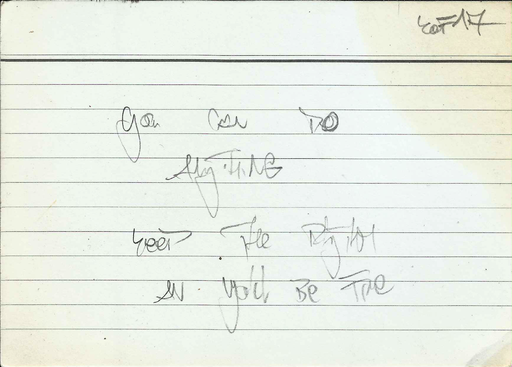 You can DO
ANyTHiNG
keep The Rhythm
AN youll Be THE